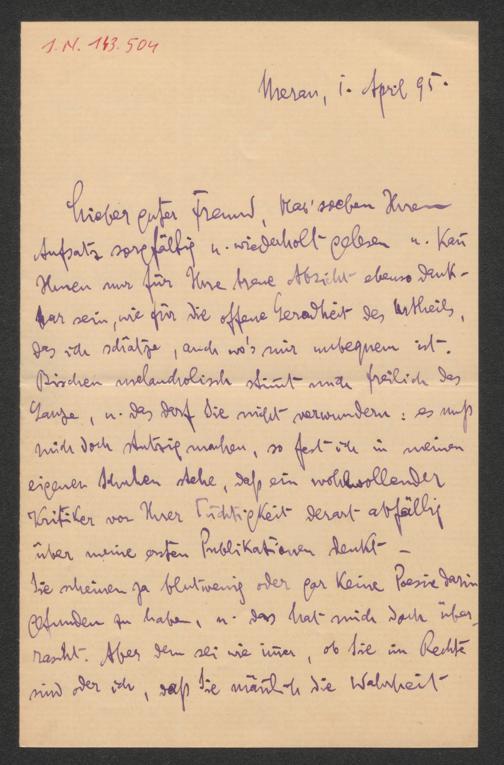 I. N. 143.504
Meran, 1. April 95.
Lieber guter Freund, hab' soeben Ihren
Aufsatz sorgfältig u. wiederholt gelesen u. kañ
Ihnen nur für Ihre treue Absicht ebenso dank-
bar sein, wie für die offene Geradheit des Urtheils,
das ich schätze, auch wo's mir unbequem ist.
Bischen melancholisch stim̄t mich freilich das
Ganze, u. das darf Sie nicht verwundern: es muß
mich doch stutzig machen, so fest ich in meinen
eigenen Schuhen stehe, daß ein wohlwollender
Kritiker von Ihrer Tüchtigkeit derart abfällig
über meine ersten Publikationen denkt –
Sie scheinen ja blutwenig oder gar keine Poesie darin
gefunden zu haben, u. das hat mich doch über-
rascht. Aber dem sei wie im̄er, ob Sie im Rechte
sind oder ich, daß Sie mäñlich die Wahrheit